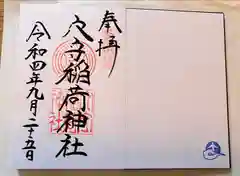 奉拝
穴守稲荷神社
令和四年九月二十五日